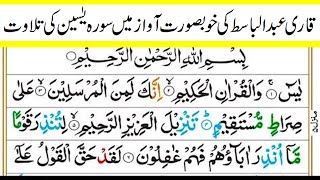 قاری عبدالباسط کی خوبصورت آواز میں سورہ یٰسین کی تلاوت
بِسْمِ اللّٰهِ الرَّحْمٰنِ الرَّحِيْمِ
يٰسٓ ۚ وَالْقُرْاٰنِ الْحَكِيْمِ ۙ اِنَّكَ لَمِنَ الْمُرْسَلِيْنَ ۙ عَلٰى
صِرَاطٍ مُّسْتَقِيْمٍ ؕ تَنْزِيْلَ الْعَزِيْزِ الرَّحِيْمِ ۙ لِتُنْذِرَ قَوْمًا
مَّاۤ اُنْذِرَ اٰبَآؤُهُمْ فَهُمْ غٰفِلُوْنَ ۞ لَقَدْ حَقَّ الْقَوْلُ عَلٰۤى